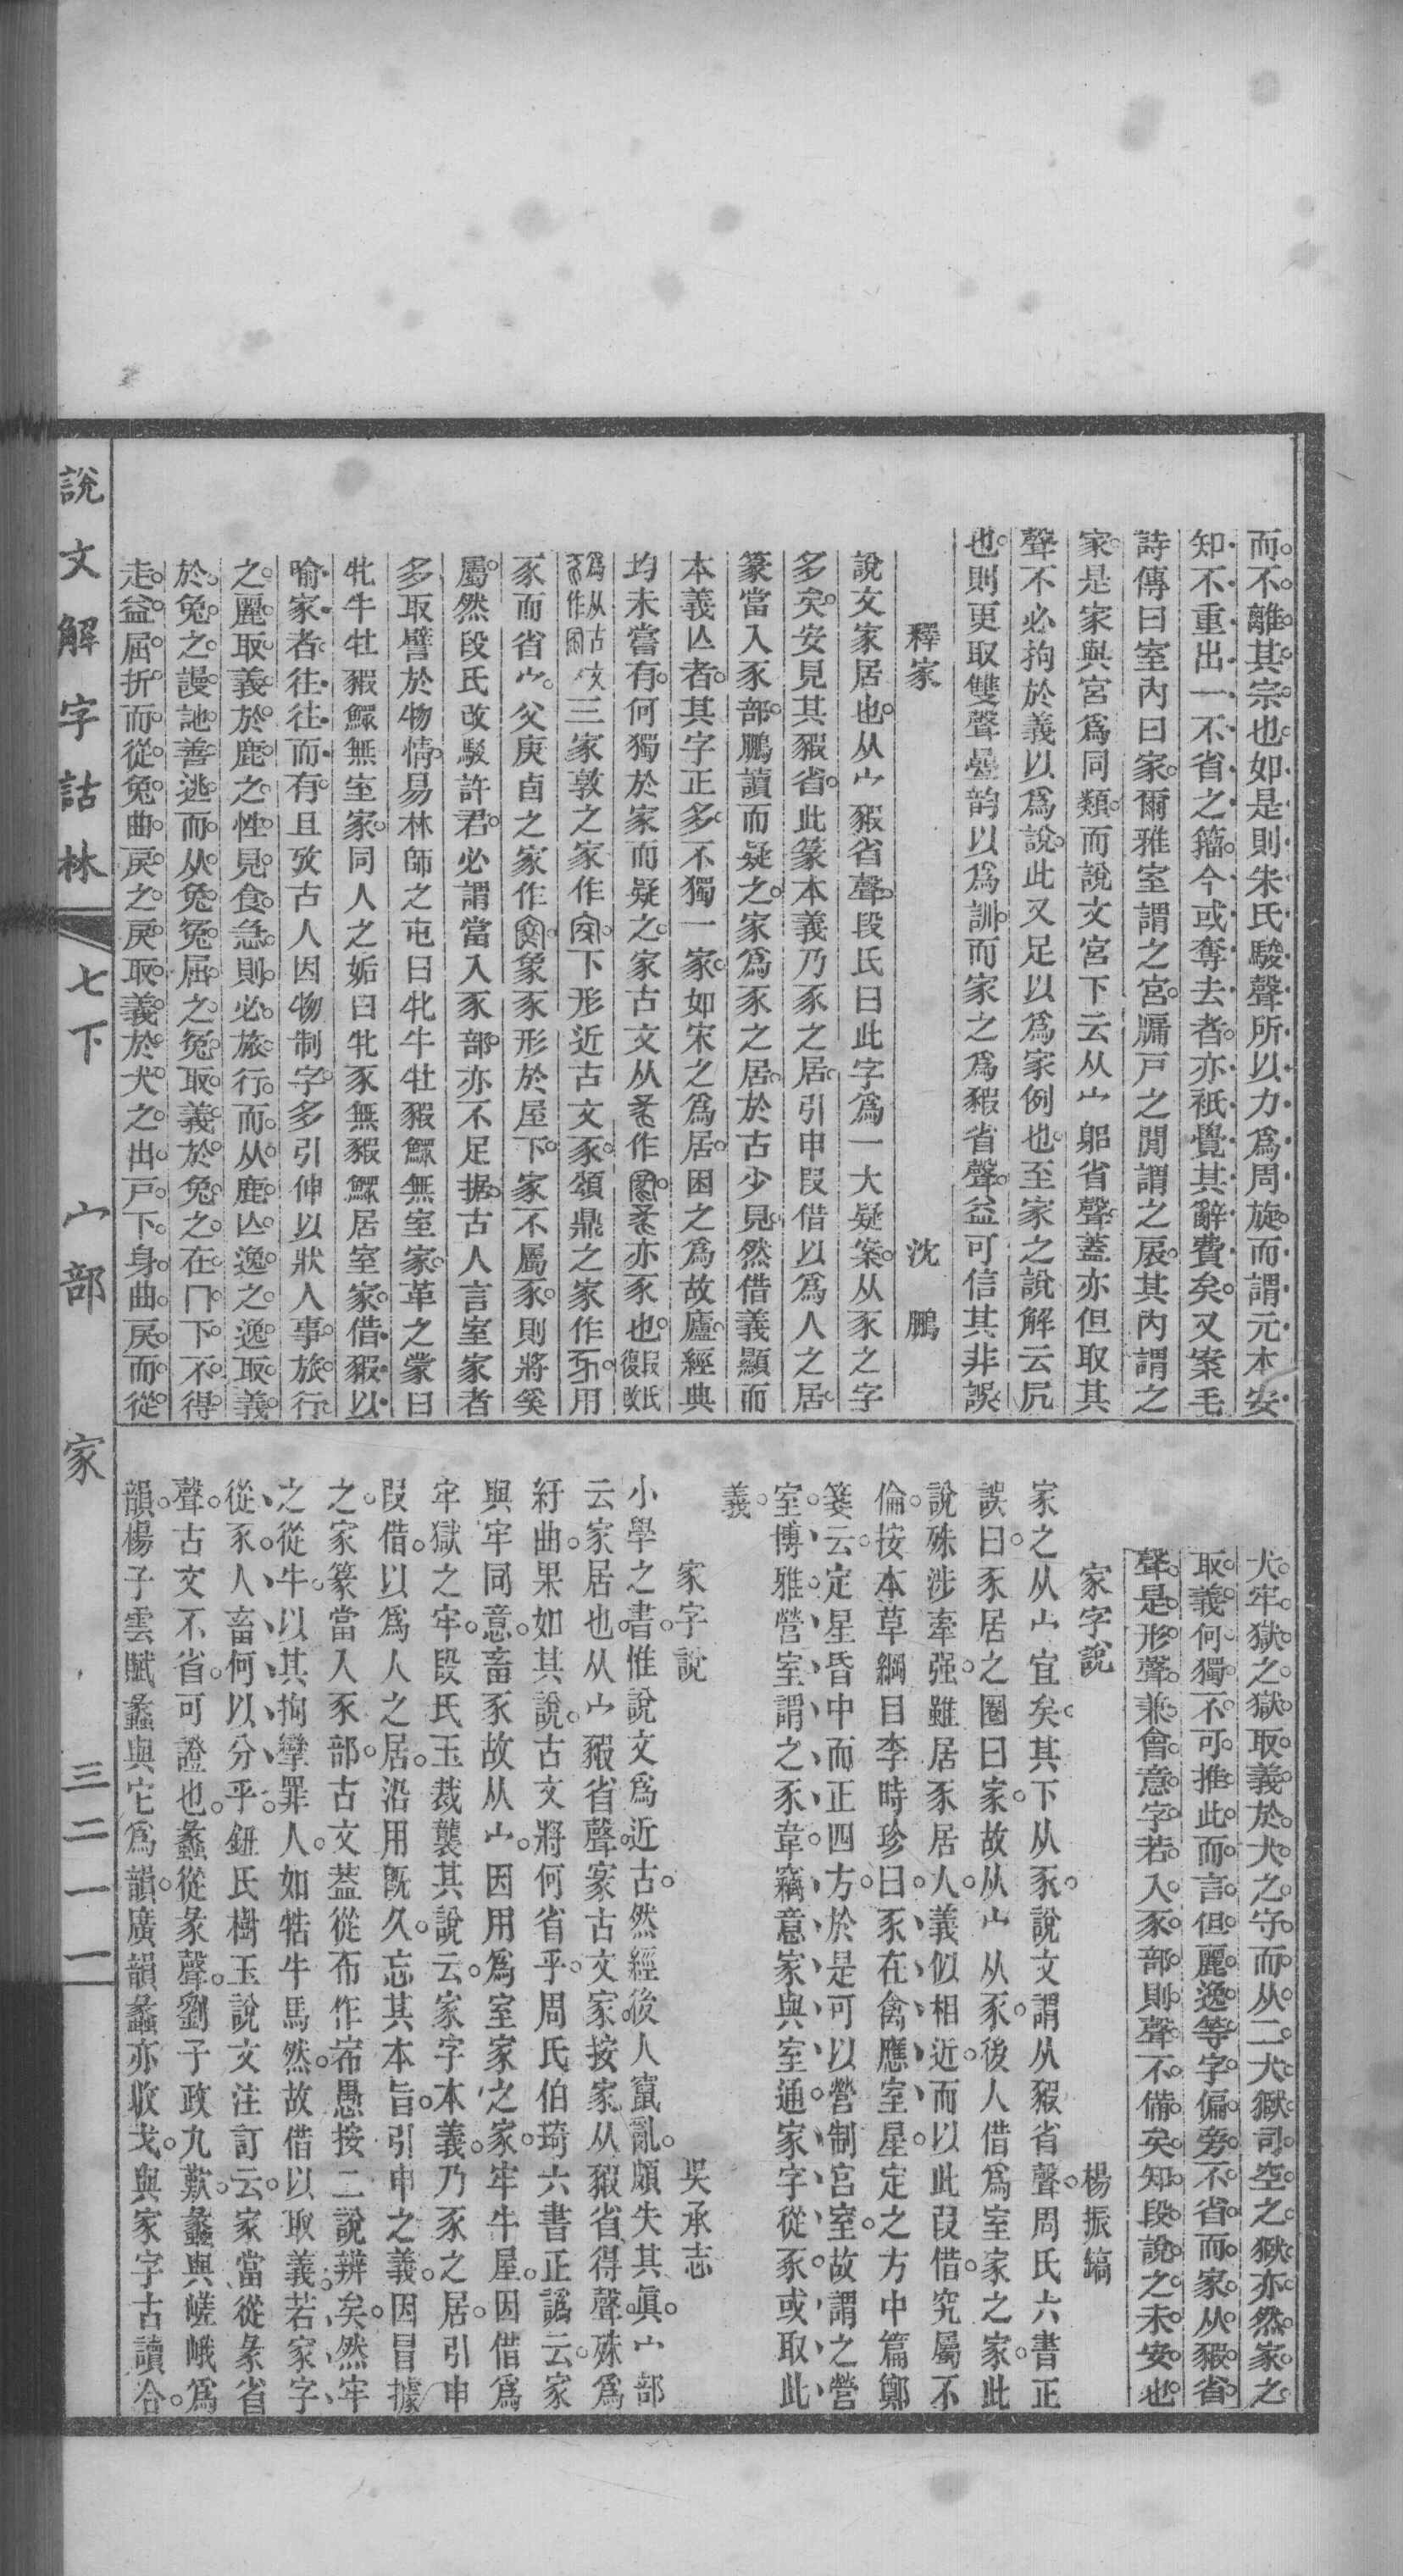 而不離其宗也如是則朱氏駿聲所以力爲周旋而謂元本安
知不重出一不省之籀今或奪去者亦衹覺其辭費矣又案毛
詩傳曰室內曰家爾雅室謂之宮牖戸之閒謂之扆其內謂之
家是家與宮爲同類而說文宮下云从宀躳省聲蓋亦但取其
聲不必拘於義以爲說此又足以爲家例也至家之說解云凥
也則更取雙聲疊韵以爲訓而家之爲豭省聲益可信其非誤
釋家 沈鵬
說文家居也从宀豭省聲段氏曰此字爲一大疑案从豕之字
多矣安見其豭省此篆本義乃豕之居引申叚借以爲人之居
篆當入豕部鵬讀而疑之家爲豕之居於古少見然借義顯而
本義亾者其字正多不獨一家如宋之爲居困之爲故廬經典
均未嘗有何獨於家而疑之家古文从作亦豕也段氏復改
爲从古文作三家敦之家作下形近古文豕頌鼎之家作用
豕而省宀父庚卣之家作象豕形於屋下家不屬豕則將奚
屬然段氏改駁許君必謂當入豕部亦不足据古人言室家者
多取譬於物情易林師之屯曰牝牛牡豭鰥無室家革之蒙曰
牝牛牡豭鰥無室家同人之姤曰牝豕無豭鰥居室家借豭以
喻家者往往而有且攷古人因物制字多引伸以狀人事旅行
之麗取義於鹿之性見食急則必旅行而从鹿亾逸之逸取義
於兔之謾訑善逃而从兔冤屈之冤取義於兔之在冂下不得
走益屈折而從兔曲戾之戾取義於犬之出戸下身曲戾而從
犬牢獄之獄取義於犬之守而从二犬獄司空之獄亦然家之
取義何獨不可推此而言但麗逸等字偏旁不省而家从豭省
聲是形聲兼會意字若入豕部則聲不備矣知段說之未安也
家字說 楊振鎬
家之从宀宜矣其下从豕說文謂从豭省聲周氏六書正
誤曰豕居之圈曰家故从宀从豕後人借爲室家之家此
說殊涉牽强雖居豕居人義似相近而以此叚借究屬不
倫按本草綱目李時珍曰豕在禽應室星定之方中篇鄭
箋云定星昏中而正四方於是可以營制宮室故謂之營
室博雅營室謂之豕韋竊意家與室通家字從豕或取此
義
家字說 吳承志
小學之書惟說文爲近古然經後人竄亂頗失其眞宀部
云家居也从宀豭省聲家古文家按家从豭省得聲殊爲
紆曲果如其說古文將何省乎周氏伯琦六書正譌云家
與牢同意畜豕故从宀因用爲室家之家牢牛屋因借爲
牢獄之牢段氏玉裁襲其說云家字本義乃豕之居引申
叚借以爲人之居沿用旣久忘其本旨引申之義因冒據
之家篆當入豕部古文蓋從布作愚按二說辨矣然牢
之從牛以其拘攣罪人如牿牛馬然故借以取義若家字
從豕人畜何以分乎鈕氏樹玉說文注訂云家當從彖省
聲古文不省可證也蠡從彖聲劉子政九歎蠡與嵯峨爲
韻楊子雲賦蠡與它爲韻廣韻蠡亦收戈與家字古讀合
說文解字詁林 七下 宀部 家 三二一一